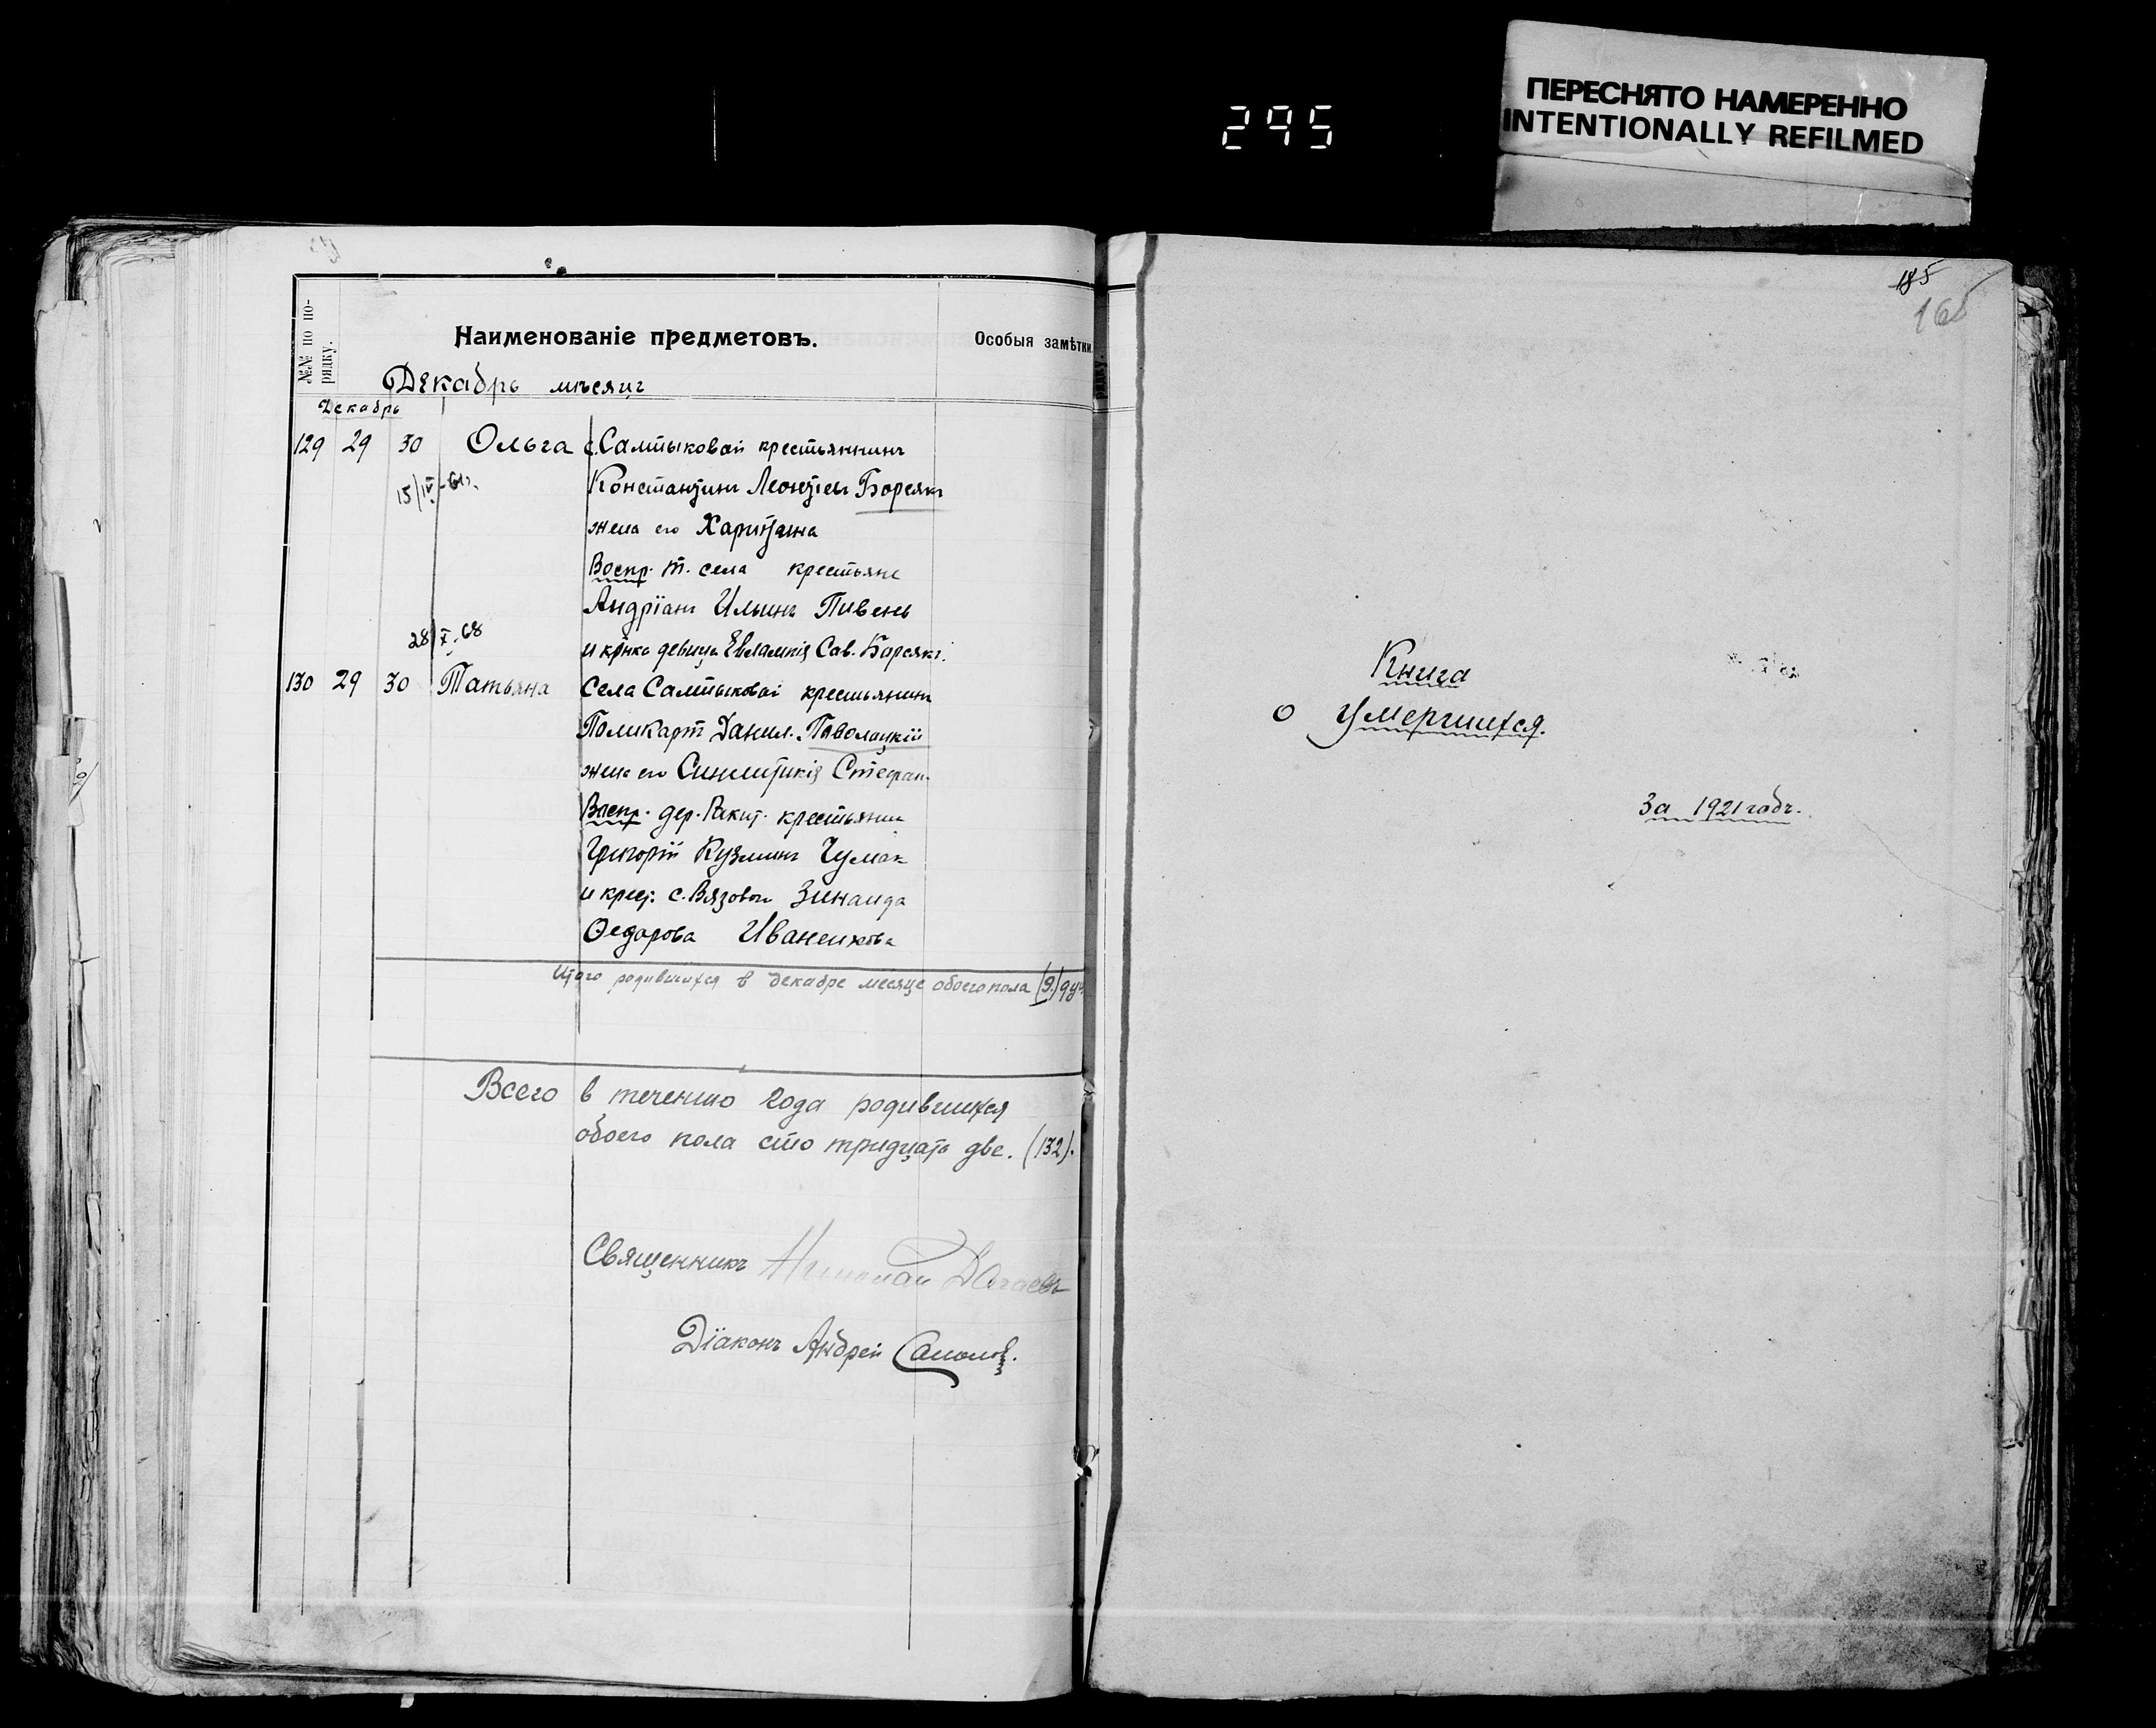 295
ПЕРЕСНЯТО НАМЕРЕННО
INTENTIONALLY REFILMED
№№ по по-
рядку.
Наименованіе предметовъ.
Особыя замѣтки
Декабрь мѣсяцъ
Декабрь
129 29 30 Ольга с. Салтыковой крестьянинъ
15/IV-61г.
Константинъ Леонтіевъ Борсякъ
жена его Харитина
Воспр. т. села крестьяне
Андріанъ Ильинъ Пивень
28/X-68
и крѣка девица Евлампія Сав. Борсякъ.
130 29 30 Татьяна Села Салтыковой крестьянинъ
Поликарп Данил. Паволоцкій
жена его Синклитикія Стефан.
Воспр. дер. Ракит. крестьянин
Григорій Кузминъ Чумак
и крест. с. Вязовой Зинаида
Ѳедорова Иваненкова
Итого родившихся в декабре месяце обоего пола (9.) душ
Всего в течению года родившихся
обоего пола сто тридцать две. (132).
Священникъ Николай
Діаконъ Андрей
185
165
Книга
о умершихся.
За 1921 годъ.